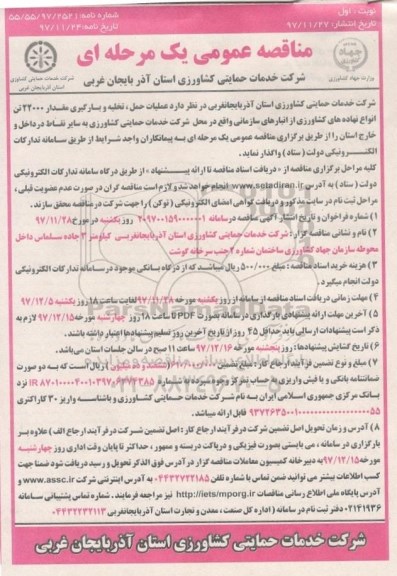 نوبت - اول
تاریخ انتشار: ۹۷/۱۱/۲۷
شماره نامه: ۵۵/۵۵/۹۷/۲۵۲۱
تاریخ نامه: ۹۷/۱۱/۲۴
مناقصه عمومی یک مرحله ای
شرکت خدمات حمایتی کشاورزی استان آذربایجان غربی
وزارت جهاد کشاورزی
شرکت خدمات حمایتی کشاورزی
استان آذربایجان غربی
شرکت خدمات حمایتی کشاورزی استان آذربایجانغربی در نظر دارد عملیات حمل ، تخلیه و بارگیری مقدار ۲۲۰۰۰ تن
انواع نهاده های کشاورزی از انبارهای سازمانی واقع در محل شرکت خدمات حمایتی کشاورزی به سایر نقاط در داخل و
خارج استان را از طریق برگزاری مناقصه عمومی یک مرحله ای به پیمانکاران واجد شرایط از طریق سامانه تدارکات
الکترونیکی دولت ( ستاد ) واگذار نماید.
کلیه مراحل برگزاری مناقصه از « دریافت اسناد مناقصه تا ارائه پیشنهاد » از طریق درگاه سامانه تدارکات الکترونیکی
دولت ( ستاد ) به آدرس www.sgtadiran.ir انجام خواهد شد و لازم است مناقصه گران در صورت عدم عضویت قبلی ،
مراحل ثبت نام در سایت مذکور و دریافت گواهی امضای الکترونیکی ( توکن ) را جهت شرکت در مناقصه محقق سازند.
۱ ) شماره فراخوان و تاریخ انتشار آگهی مناقصه در سامانه روز یکشنبه در مورخ ۹۷/۱۱/۲۸
۲ ) نام و نشانی مناقصه گزار : شرکت خدمات حمایتی کشاورزی استان آذربایجانغربی کیلومتر ۳ جاده سلماس داخل
محوطه سازمان جهاد کشاورزی ساختمان شماره ۲ جنب سرخانه گوشت
۳ ) هزینه خرید اسناد مناقصه : مبلغ ۵۰۰/۰۰۰ ریال میباشد که از درگاه بانکی موجود در سامانه تدارکات الکترونیکی
دولت انجام میگیرد.
۴ ) مهلت زمانی دریافت اسناد مناقصه از سامانه از روز یکشنبه مورخه ۹۷/۱۱/۲۸ لغایت ساعت ۱۸ روز یکشنبه ۹۷/۱۲/۵
۵ ) آخرین مهلت ارائه پیشنهادی بارگذاری در سامانه بصورت PDF تا ساعت ۱۸ روز چهارشنبه مورخه ۹۷/۱۲/۱۵ لازم به
ذکر است پیشنهادات ارسالی باید حداقل ۴۵ روز از تاریخ آخرین روز تسلیم پیشنهادها اعتبار داشته باشد .
۶ ) تاریخ گشایش پیشنهادها : روز پنجشنبه مورخه ۹۷/۱۲/۱۶ ساعت ۱۱ صبح در سالن جلسات استان می‌باشد .
۷ ) مبلغ و نوع تضمین فرآیند ارجاع کار : مبلغ تضمین ریال است که به دو صورت
ضمانتنامه بانکی و یا فیش واریزی به حساب تمرکز وجوه سپرده به شماره نزد
بانک مرکزی جمهوری اسلامی ایران به نام شرکت خدمات حمایتی کشاورزی و باشناسه واریز ۳۰ کاراکتری
قابل ارائه میباشد .
۸ ) آدرس و زمان تحویل اصل تضمین شرکت در فرآیند ارجاع کار : اصل تضمین شرکت در فرآیند ارجاع الف ) علاوه بر
بارگزاری در سامانه ، می بایستی بصورت فیزیکی و درپاکت دربسته و ممهور ، حداکثر تا پایان وقت اداری روز چهارشنبه
مورخه ۹۷/۱۲/۱۵ به دبیرخانه کمیسیون معاملات مناقصه گزار در آدرس فوق الذکر تحویل و رسید دریافت شود ضمنا جهت
کسب اطلاعات بیشتر می توانید ضمن تماس با شماره تلفن ۰۴۴۳۲۷۲۲۱۸۵ به آدرس اینترنتی شرکت www.assc.ir و
آدرس پایگاه ملی اطلاع رسانی مناقصات http://iets/mporg.ir نیز مراجعه فرمایند . شماره تماس پشتیبانی سامانه
۰۲۱۴۱۹۳۶ دفتر ثبت نام در سامانه ( اداره کل صنعت ، معدن و تجارت استان آذربایجانغربی ۰۴۴۳۲۲۳۲۱۱۳)
شرکت خدمات حمایتی کشاورزی استان آذربایجان غربی